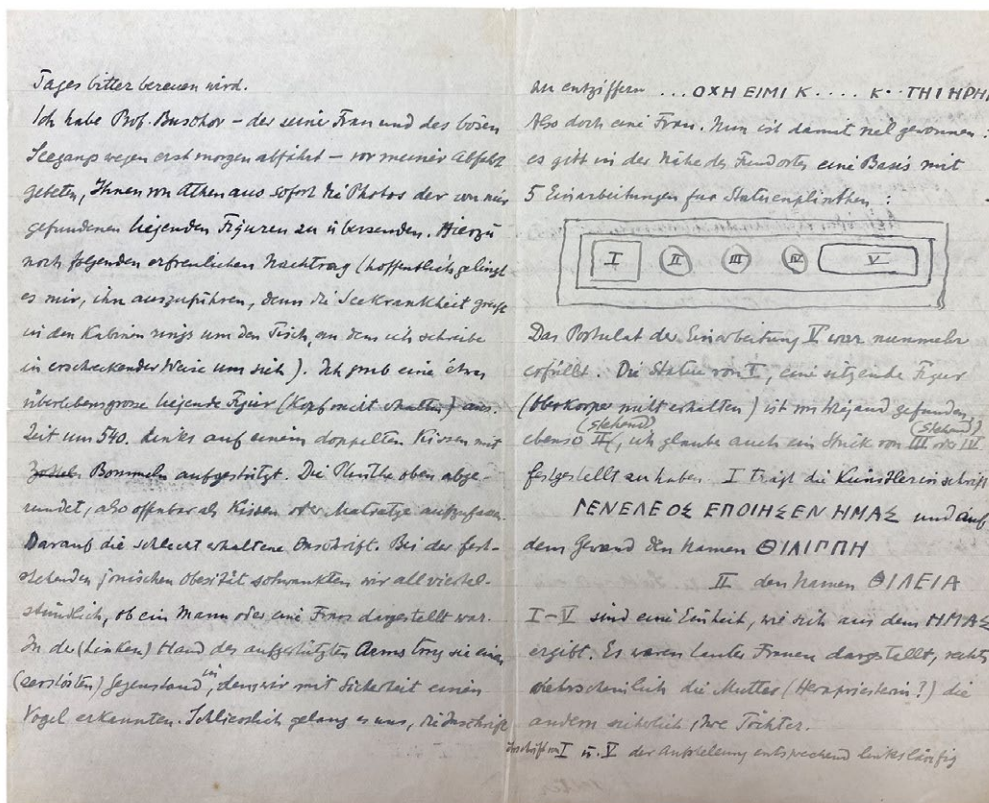 Tages bitter bereuen wird.
Ich habe Prof. Buschor – der seiner Frau und des bösen
Seegangs wegen erst morgen abfährt – vor meiner Abfahrt
gebeten, Ihnen von Athen aus sofort die Photos der von mir
gefundenen liegenden Figuren zu übersenden. Hierzu
noch folgenden erfreulichen Nachtrag (hoffentlich gelingt
es mir, ihn auszuführen, denn die Seekrankheit greift
in den Kabinen rings um den Tisch, an dem ich schreibe
in erschreckender Weise um sich). Ich grub eine etwas
überlebensgrosse liegende Figur (Kopf nicht erhalten) aus.
Zeit um 540. Links auf einem doppelten Kissen mit
Bommeln aufgestützt. Die Plinthe oben abge-
rundet, also offenbar als Kissen oder Matratze aufzufassen.
Darauf die schlecht erhaltene Inschrift. Bei der fest-
stehenden jonischen Obesität schwankten wir all viertel-
stündlich, ob ein Mann oder eine Frau dargestellt war.
In der (linken) Hand des aufgestützten Arms trug sie einen
(zerstörten) Gegenstand, in dem wir mit Sicherheit einen
Vogel erkannten. Schliesslich gelang es uns, die Inschrift
zu entziffern ...ΟΧΗ ΕΙΜΙ Κ.... Κ··ΤΗΙ ΗΡΗΙ
Also doch eine Frau. Nun ist damit viel gewonnen:
es gibt in der Nähe des Fundortes eine Basis mit
5 Einarbeitungen für Statuenplinthen:
I II III IV V
Das Postulat der Einarbeitung V war nunmehr
erfüllt. Die Statue von I, eine sitzende Figur
(Oberkörper nicht erhalten) ist von Wiegand gefunden,
ebenso II (stehend), ich glaube auch ein Stück von III oder IV (stehend)
festgestellt zu haben. I trägt die Künstlerinschrift
ΓΕΝΕΛΕΟΣ ΕΠΟΙΗΣΕΝ ΗΜΑΣ und auf
dem Gewand den Namen ΘΙΛΙΠΠΗ
II den Namen ΘΙΛΕΙΑ
I–V sind eine Einheit, wie sich aus dem ΗΜΑΣ
ergibt. Es waren lauter Frauen dargestellt, rechts
wahrscheinlich die Mutter (Herapriesterin?) die
andern sicherlich ihre Töchter.
Inschrift von I u. V der Aufstellung entsprechend linksläufig